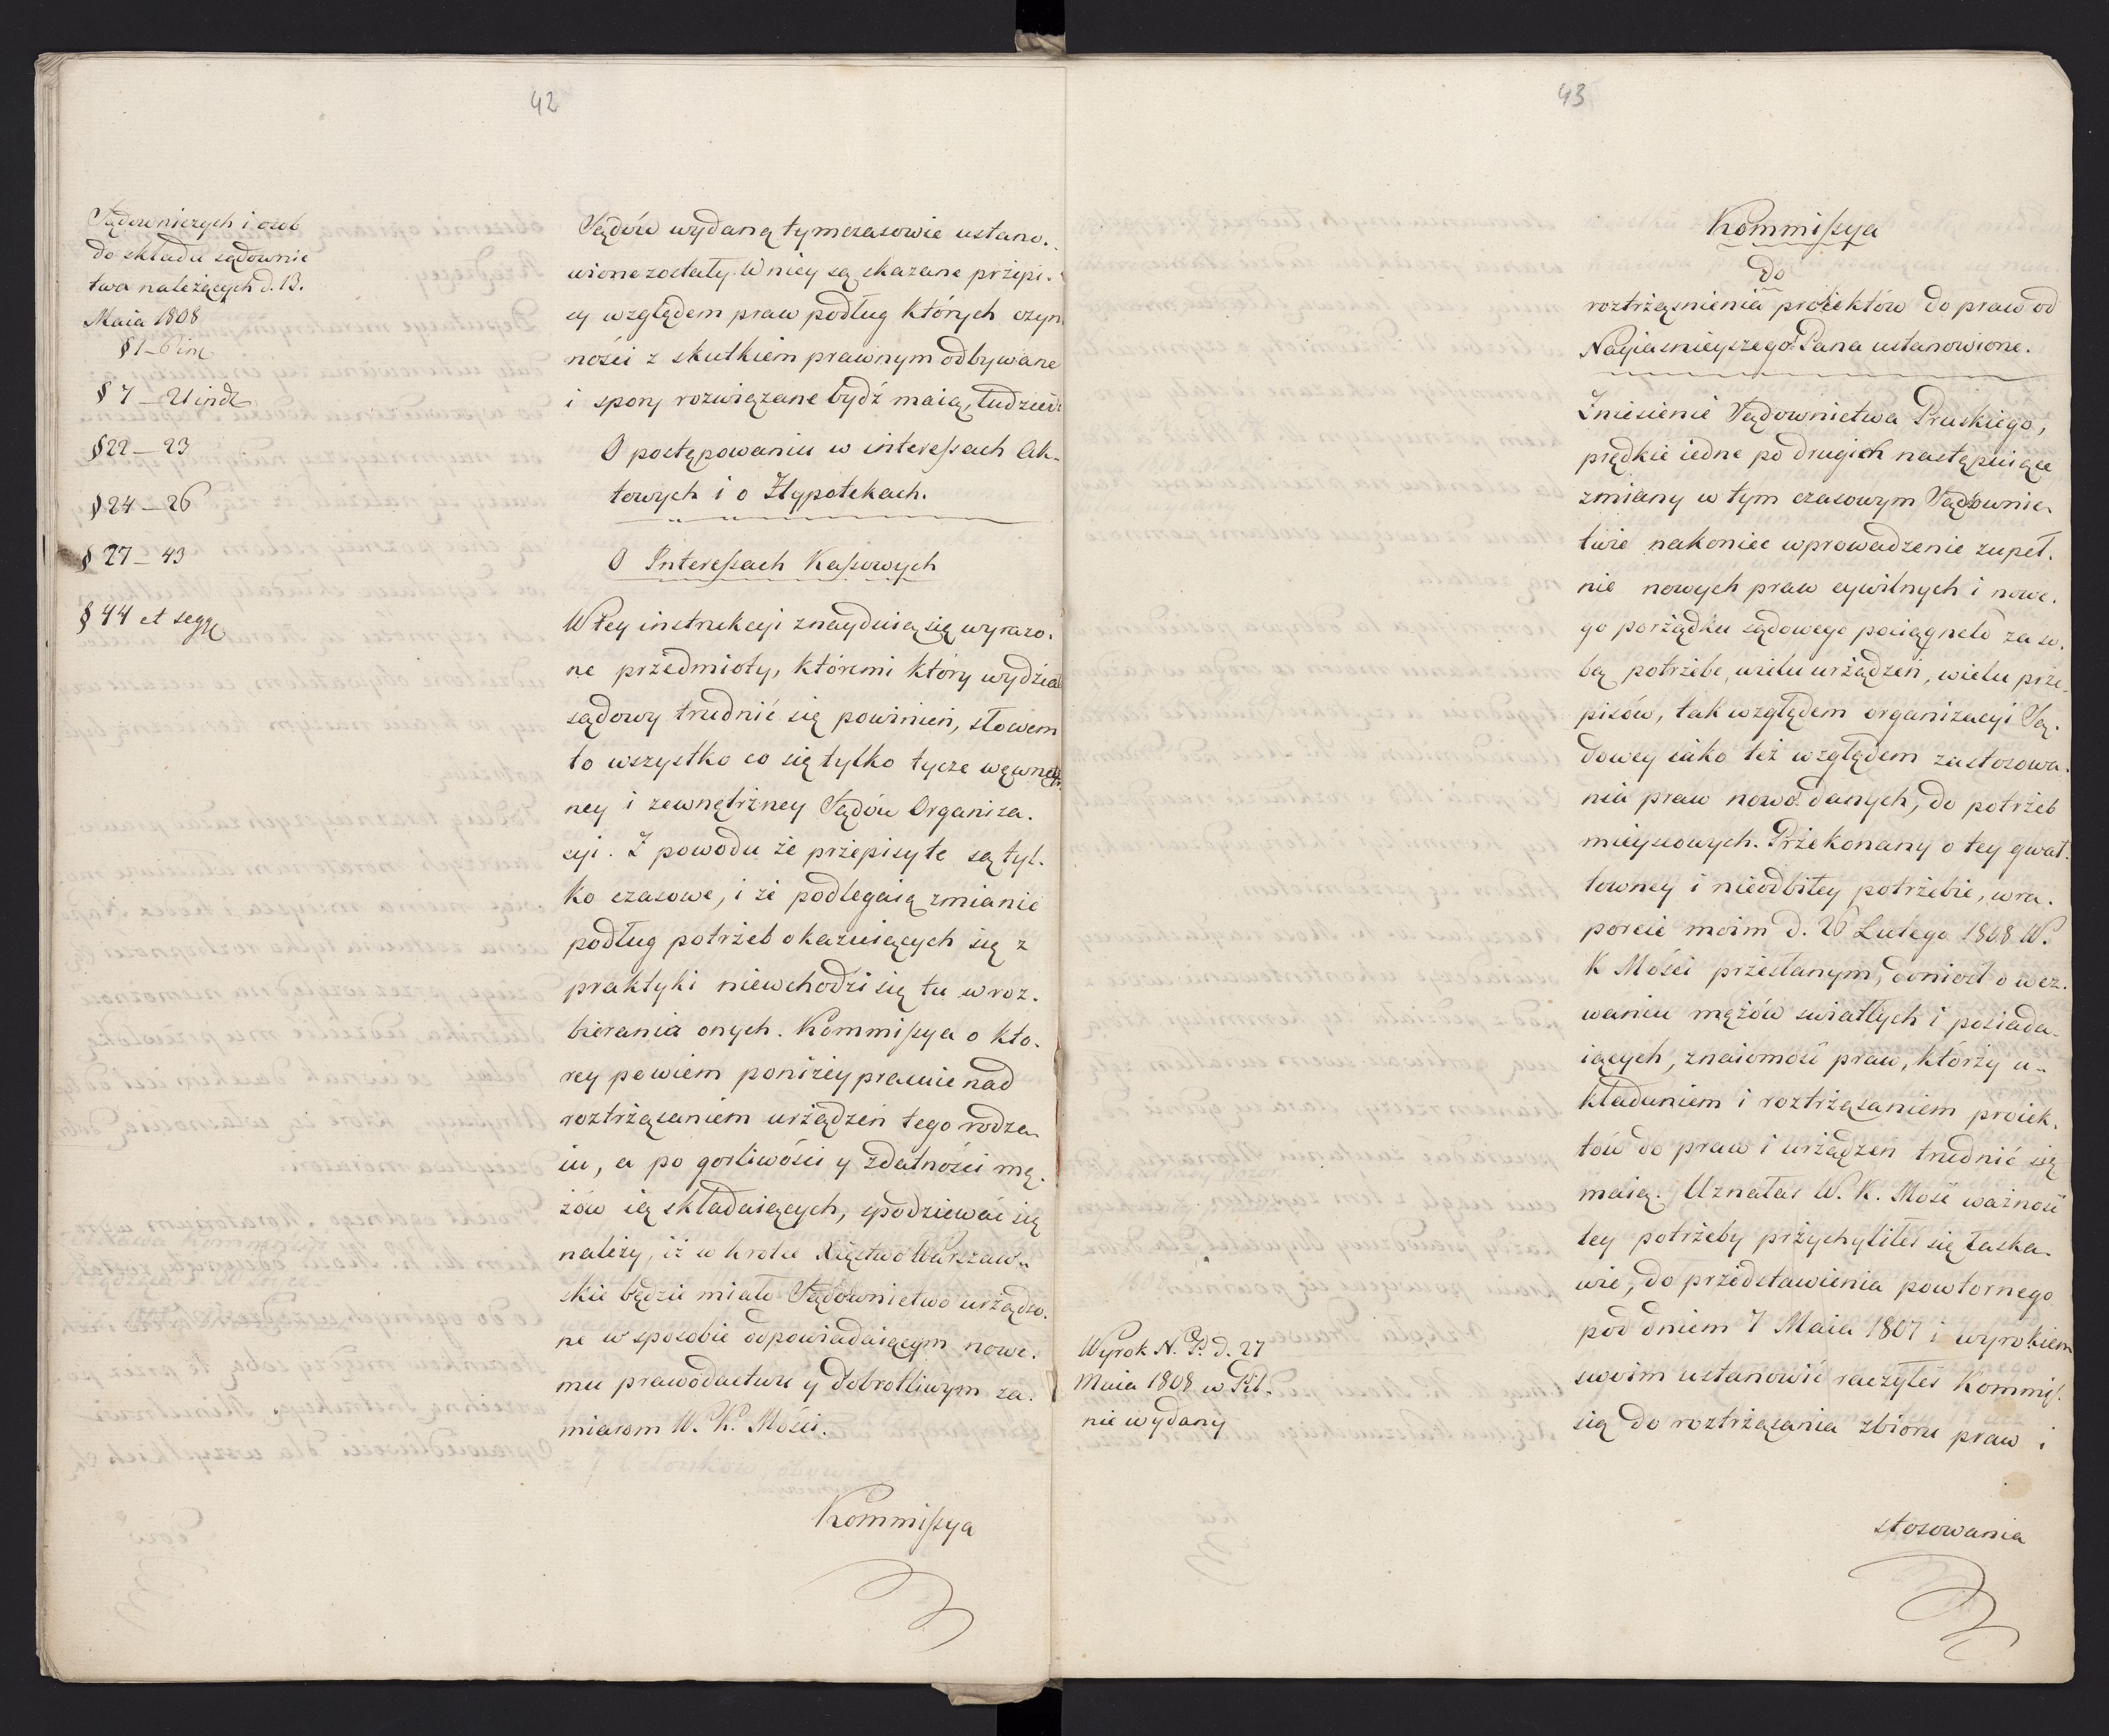 42
Sądowniczych i osob
do składu sądownic
twa należących d. 13.
Maia 1808
§ 1–6 inc
§ 7 – 21 incl
§ 22 – 23
§ 24 – 26
§ 27 – 43
§ 44 et seqq
Sądów wydaną tymczasowie ustano.
wione zostały. W niey są skazane przepi.
sy względem praw podług których czyn
ności z skutkiem prawnym odbywane
i spory rozwiązane bydź maią, tudzież
O postępowaniu w interessach Ak-
towych i o Hypotekach.
O Interessach Kassowych
W tey instrukcyi znayduią się wyrazo.
ne przedmioty, któremi który wydział
sądowy trudnić się powinien, słowem
to wszystko co się tylko tycze wewnętrz
ney i zewnętrzney Sądów Organiza.
cyi. Z powodu że przepisy te są tyl.
ko czasowe, i że podlegaią zmianie
podług potrzeb okazuiących się z
praktyki niewchodzi się tu w roz.
bierania onych. Kommissya o któ.
rey powiem poniżey pracuie nad
roztrząsaniem urządzeń tego rodza
iu, a po gorliwości y zdatności mę.
żów ią składaiących, spodziewać się
należy, iż w krotce Xięstwo Warszaw-
skie będzie miało Sądownictwo urządzo.
ne w sposobie odpowiadaiącym nowe.
mu prawodactwu y dobrotliwym za.
miarom W. K. Mości.
Kommissya
43
Kommissya
do
roztrząsnienia proiektów do praw od
Nayiasnieyszego Pana ustanowione.
Zniesienie Sądownictwa Pruskiego,
prędkie iedne po drugich następuiące
zmiany w tym czasowym Sądownic
twie nakoniec wprowadzenie zupeł.
nie nowych praw cywilnych i nowe.
go porządku sądowego pociągneło za so.
bą potrzebe, wielu urządzeń, wielu prze-
pisów, tak względem organizacyi Są.
dowey iako też względem zastosowa.
nia praw nowo danych, do potrzeb
mieyscowych. Przekonany o tey gwał.
towney i nieodbitey potrzebie, w ra.
porcie moim d. 26 Lutego 1808 W.
K Mości przesłanym, doniosł o wez.
waniu mężów swiatłych i posiada-
iących, znaiomość praw, którzy u-
kładaniem i roztrząsaniem proiek.
tów do praw i urządzeń trudnić się
maią. Uznałaś W. K. Mość ważność
tey potrzeby przychyliłeś się łaska-
wie, do przedstawienia powtornego
pod dniem 7 Maia 1807 i wyrokiem
swoim ustanowić raczyłeś Kommis.
sią do roztrząsania zbioru praw i
Wyrok N. P. d. 27
Maia 1808 w
nie wydany
stosowania